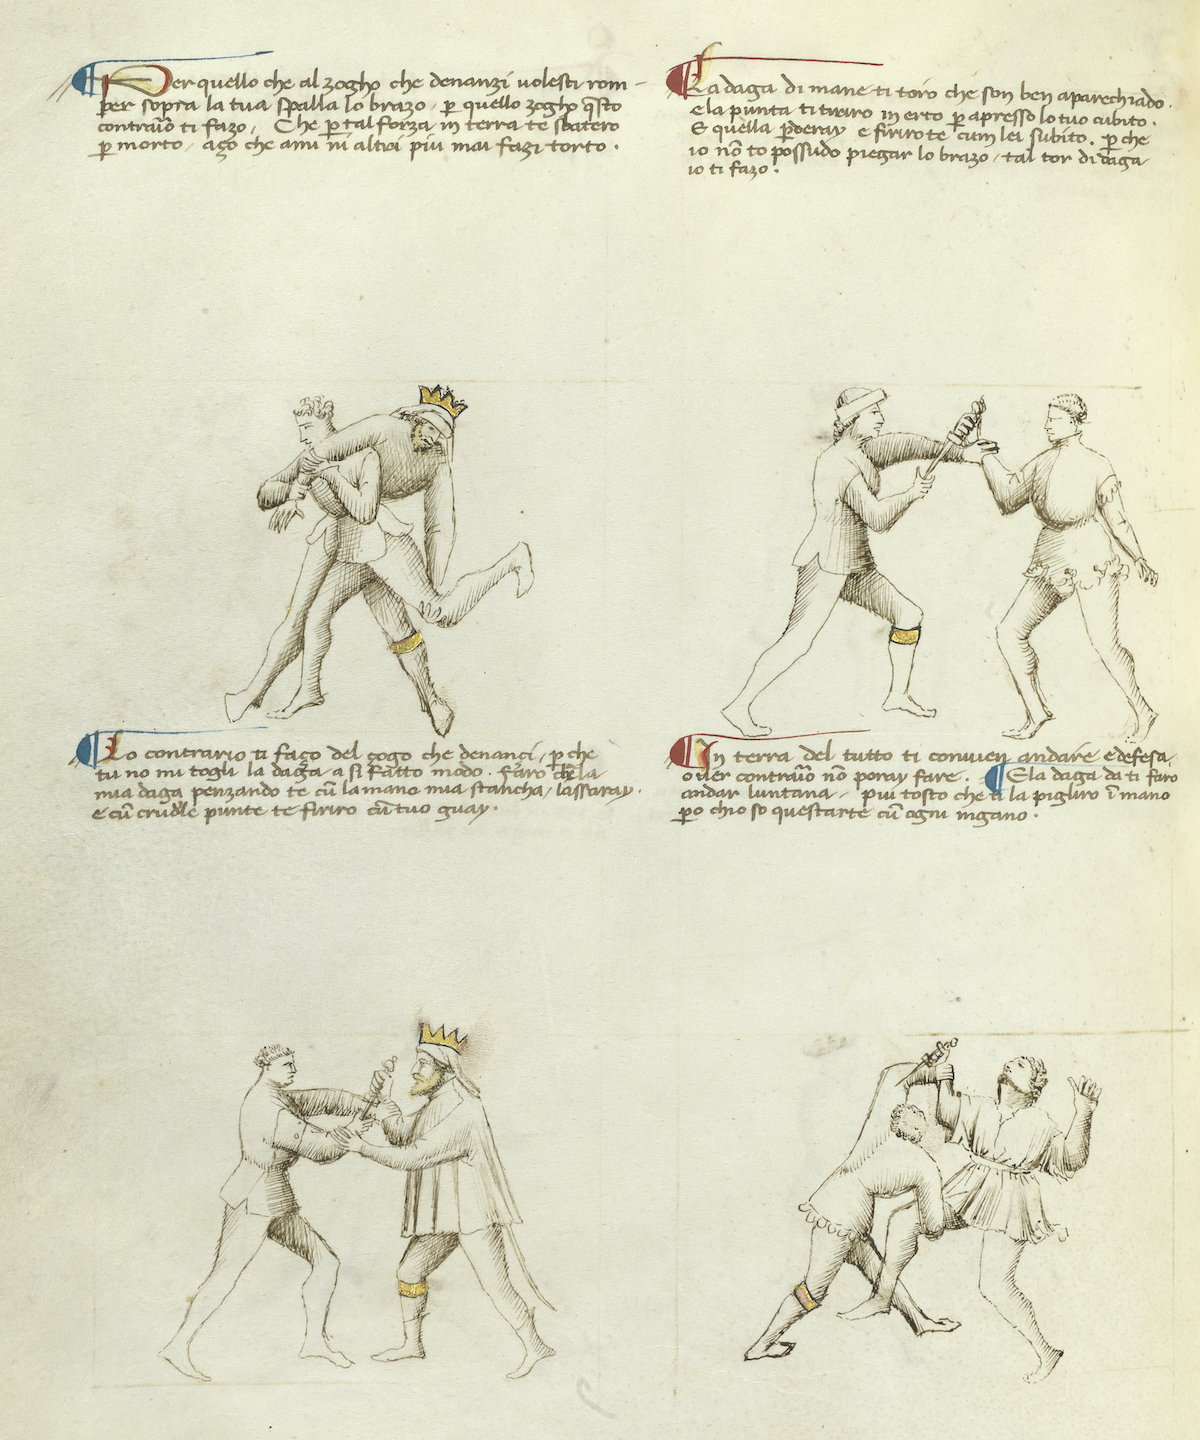 Per quello che al zogho che denanzi volesti rom-
per sopra la tua spalla lo brazo, p̲ quello zogho q̄sto
contrario ti fazo, Che p̲ tal forza in terra te sbatero
p̲ morto, aço che ami ni altri piu mai fazi torto.
La daga di mane ti toro che son ben aparechiado.
e la punta ti tiriro in erto p̲ apresso lo tuo cubito.
E quella p̲deray e firirote cum lei subito. p̲ che
io nō to possudo piegar lo brazo, tal tor di daga
io ti fazo.
Lo contrario ti faço del çogo che denanci, p̲ che
tu no mi togli la daga a si fatto modo. farò che la
mia daga penzando te cū la mano mia stancha, lassaray.
e cū crudele punte te firiro cū tuo guay.
In terra del tutto ti convien andare e defesa,
over contrario nō poray fare. E la daga da ti faro
andar luntana, piu tosto che ti la pigliro ī mano
p̲o chio so questarte cū ogni ingano.